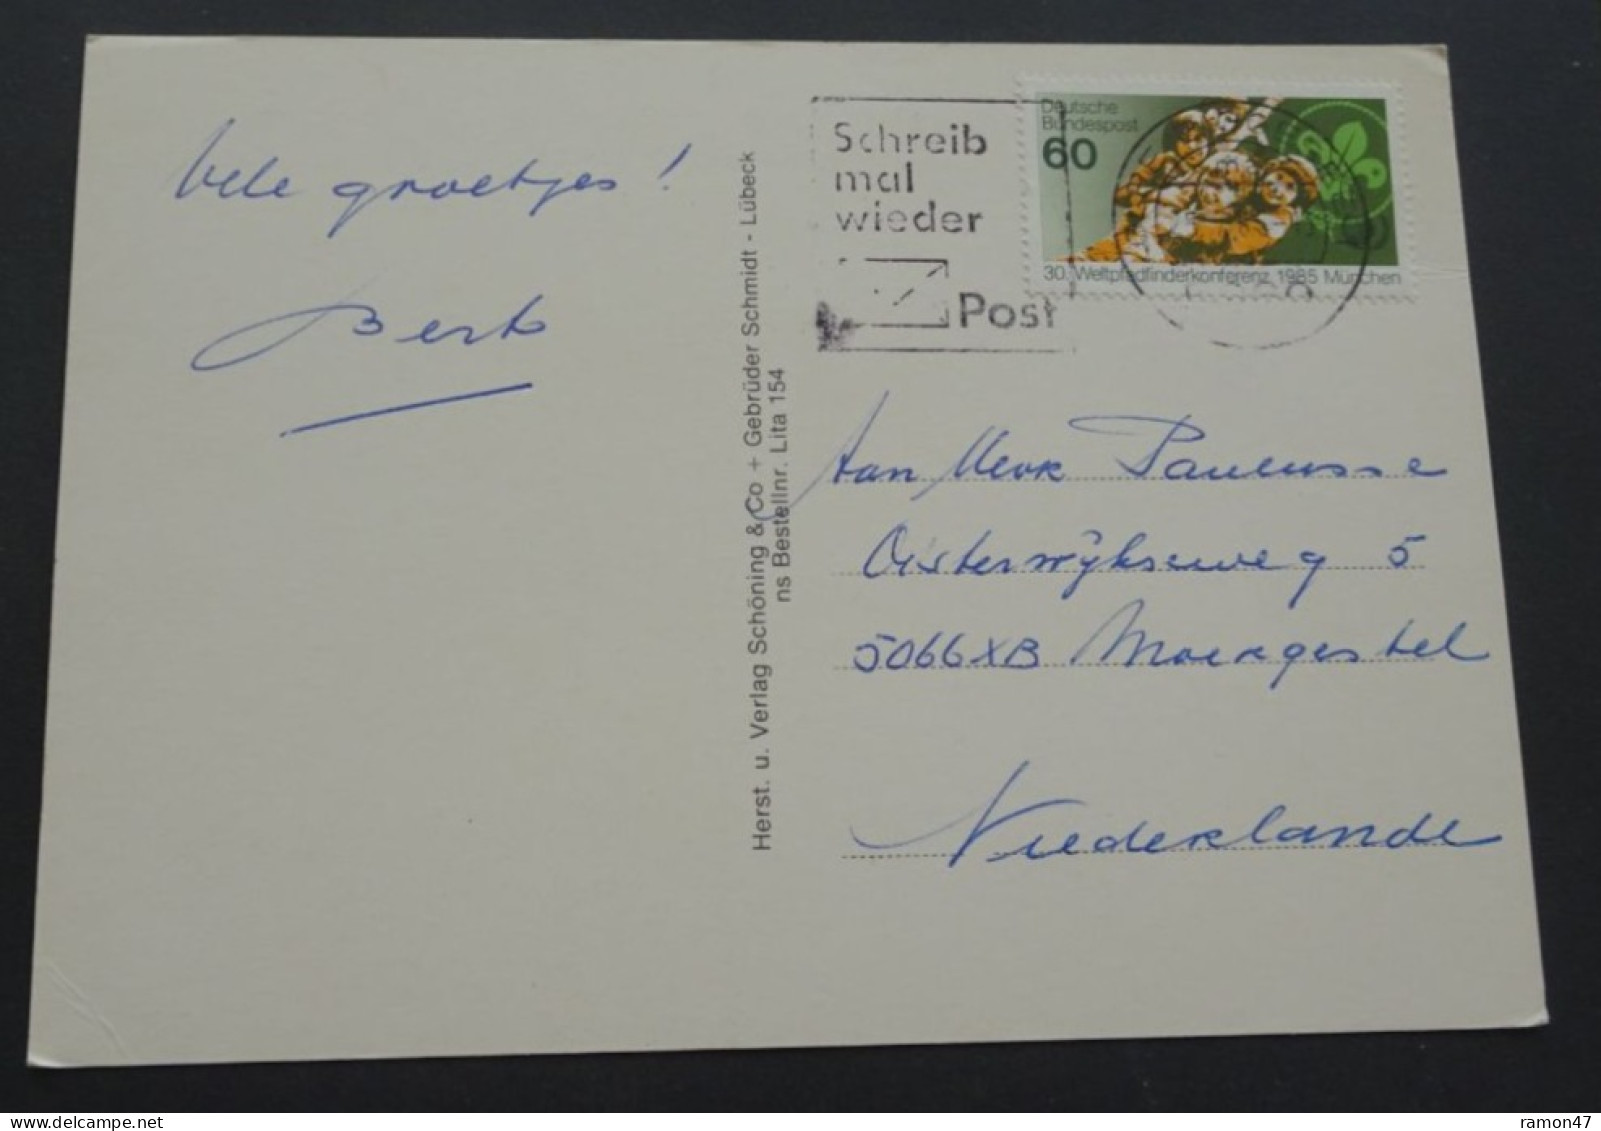 Vele groetjes!
Bert
Herst. u. Verlag Schöning & Co + Gebrüder Schmidt - Lübeck
ns Bestellnr. Lita 154
Schreib
mal
wieder
Post
Deutsche
Bundespost
60
30. Weltpfadfinderkonferenz 1985 München
Aan Paulusse
Oisterwijkseweg 5
5066XB Moergestel
Niederlande
ramon47